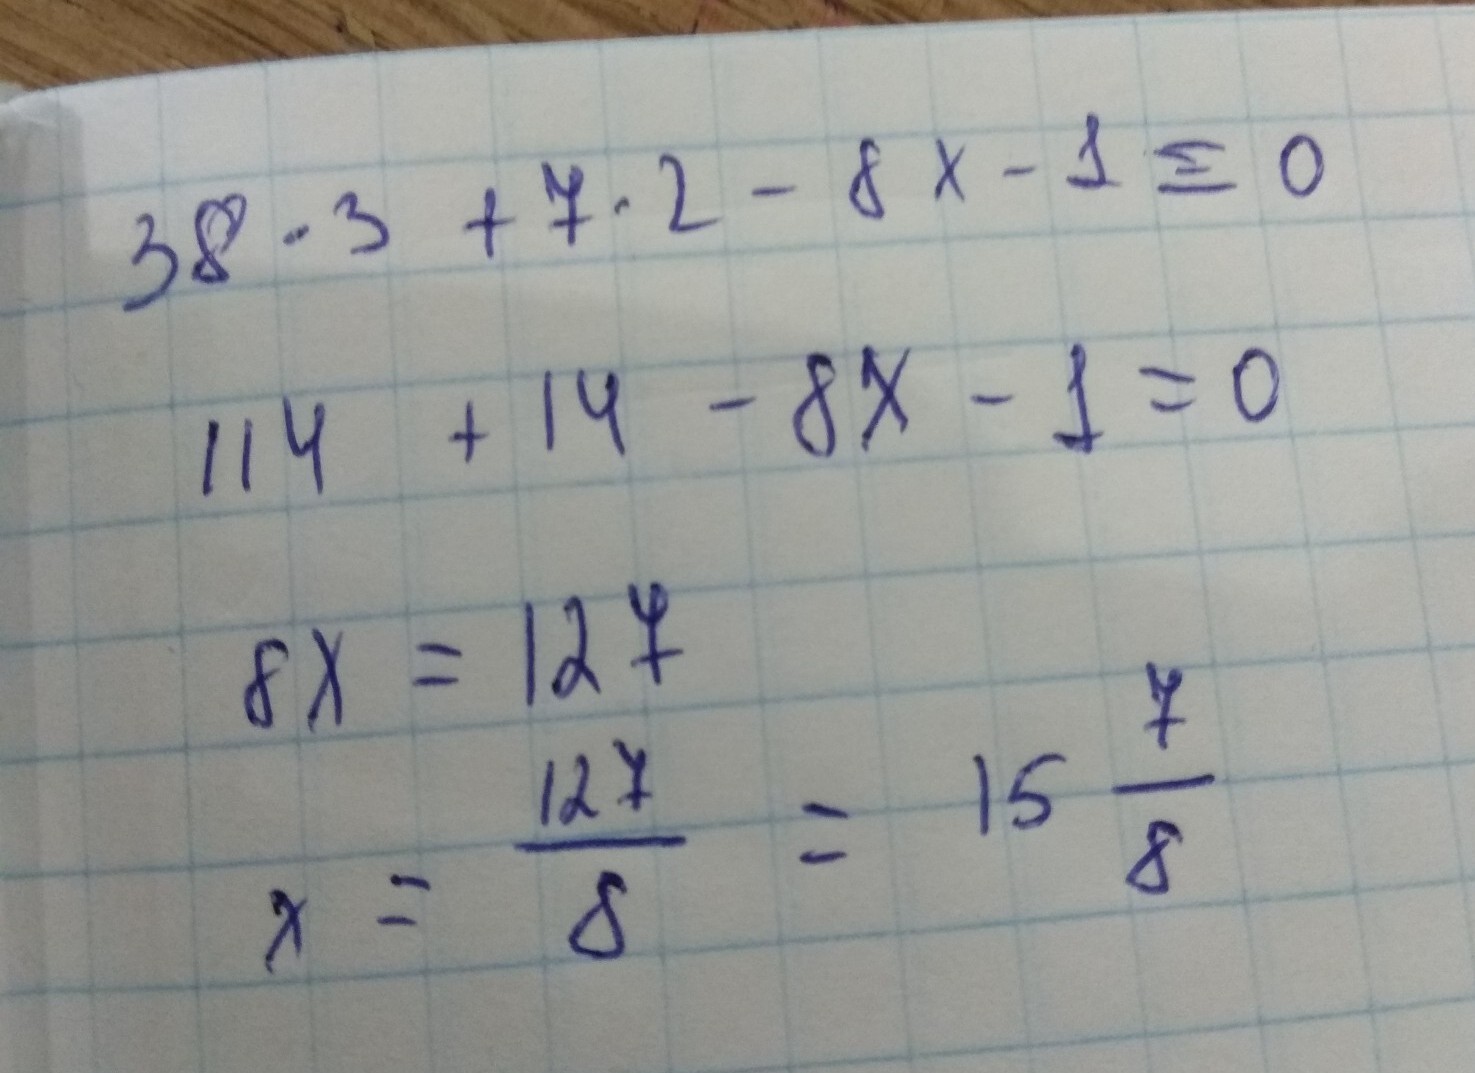 38 · 3 + 7 · 2 - 8x - 1 = 0
114 + 14 - 8x - 1 = 0
8x = 127
x = 127/8 = 15 7/8